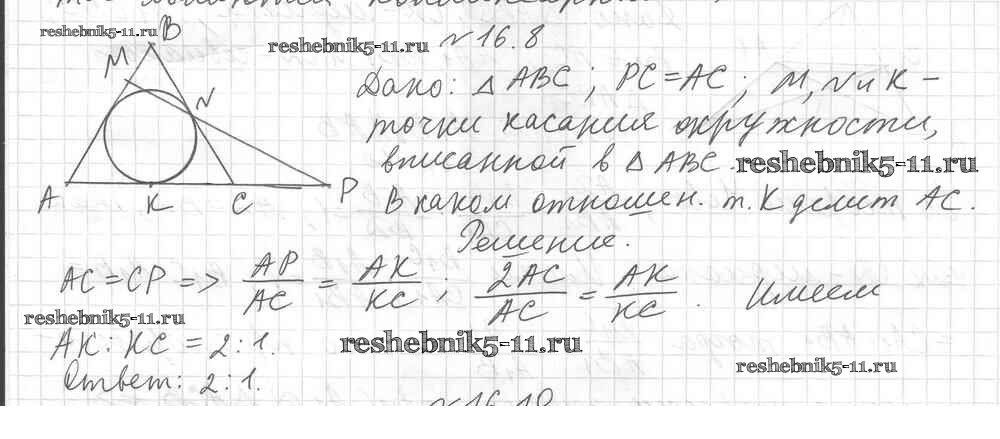 reshebnik5-11.ru
reshebnik5-11.ru
№16.8
B
M
N
A
K
C
P
Дано: △ ABC; PC = AC; M, N и K –
точки касания окружности,
вписанной в △ ABC. reshebnik5-11.ru
В каком отношен. т. K делит AC.
Решение.
AC = CP => AP/AC = AK/KC; 2AC/AC = AK/KC. Имеем
reshebnik5-11.ru
AK : KC = 2 : 1. reshebnik5-11.ru
reshebnik5-11.ru
Ответ: 2 : 1.